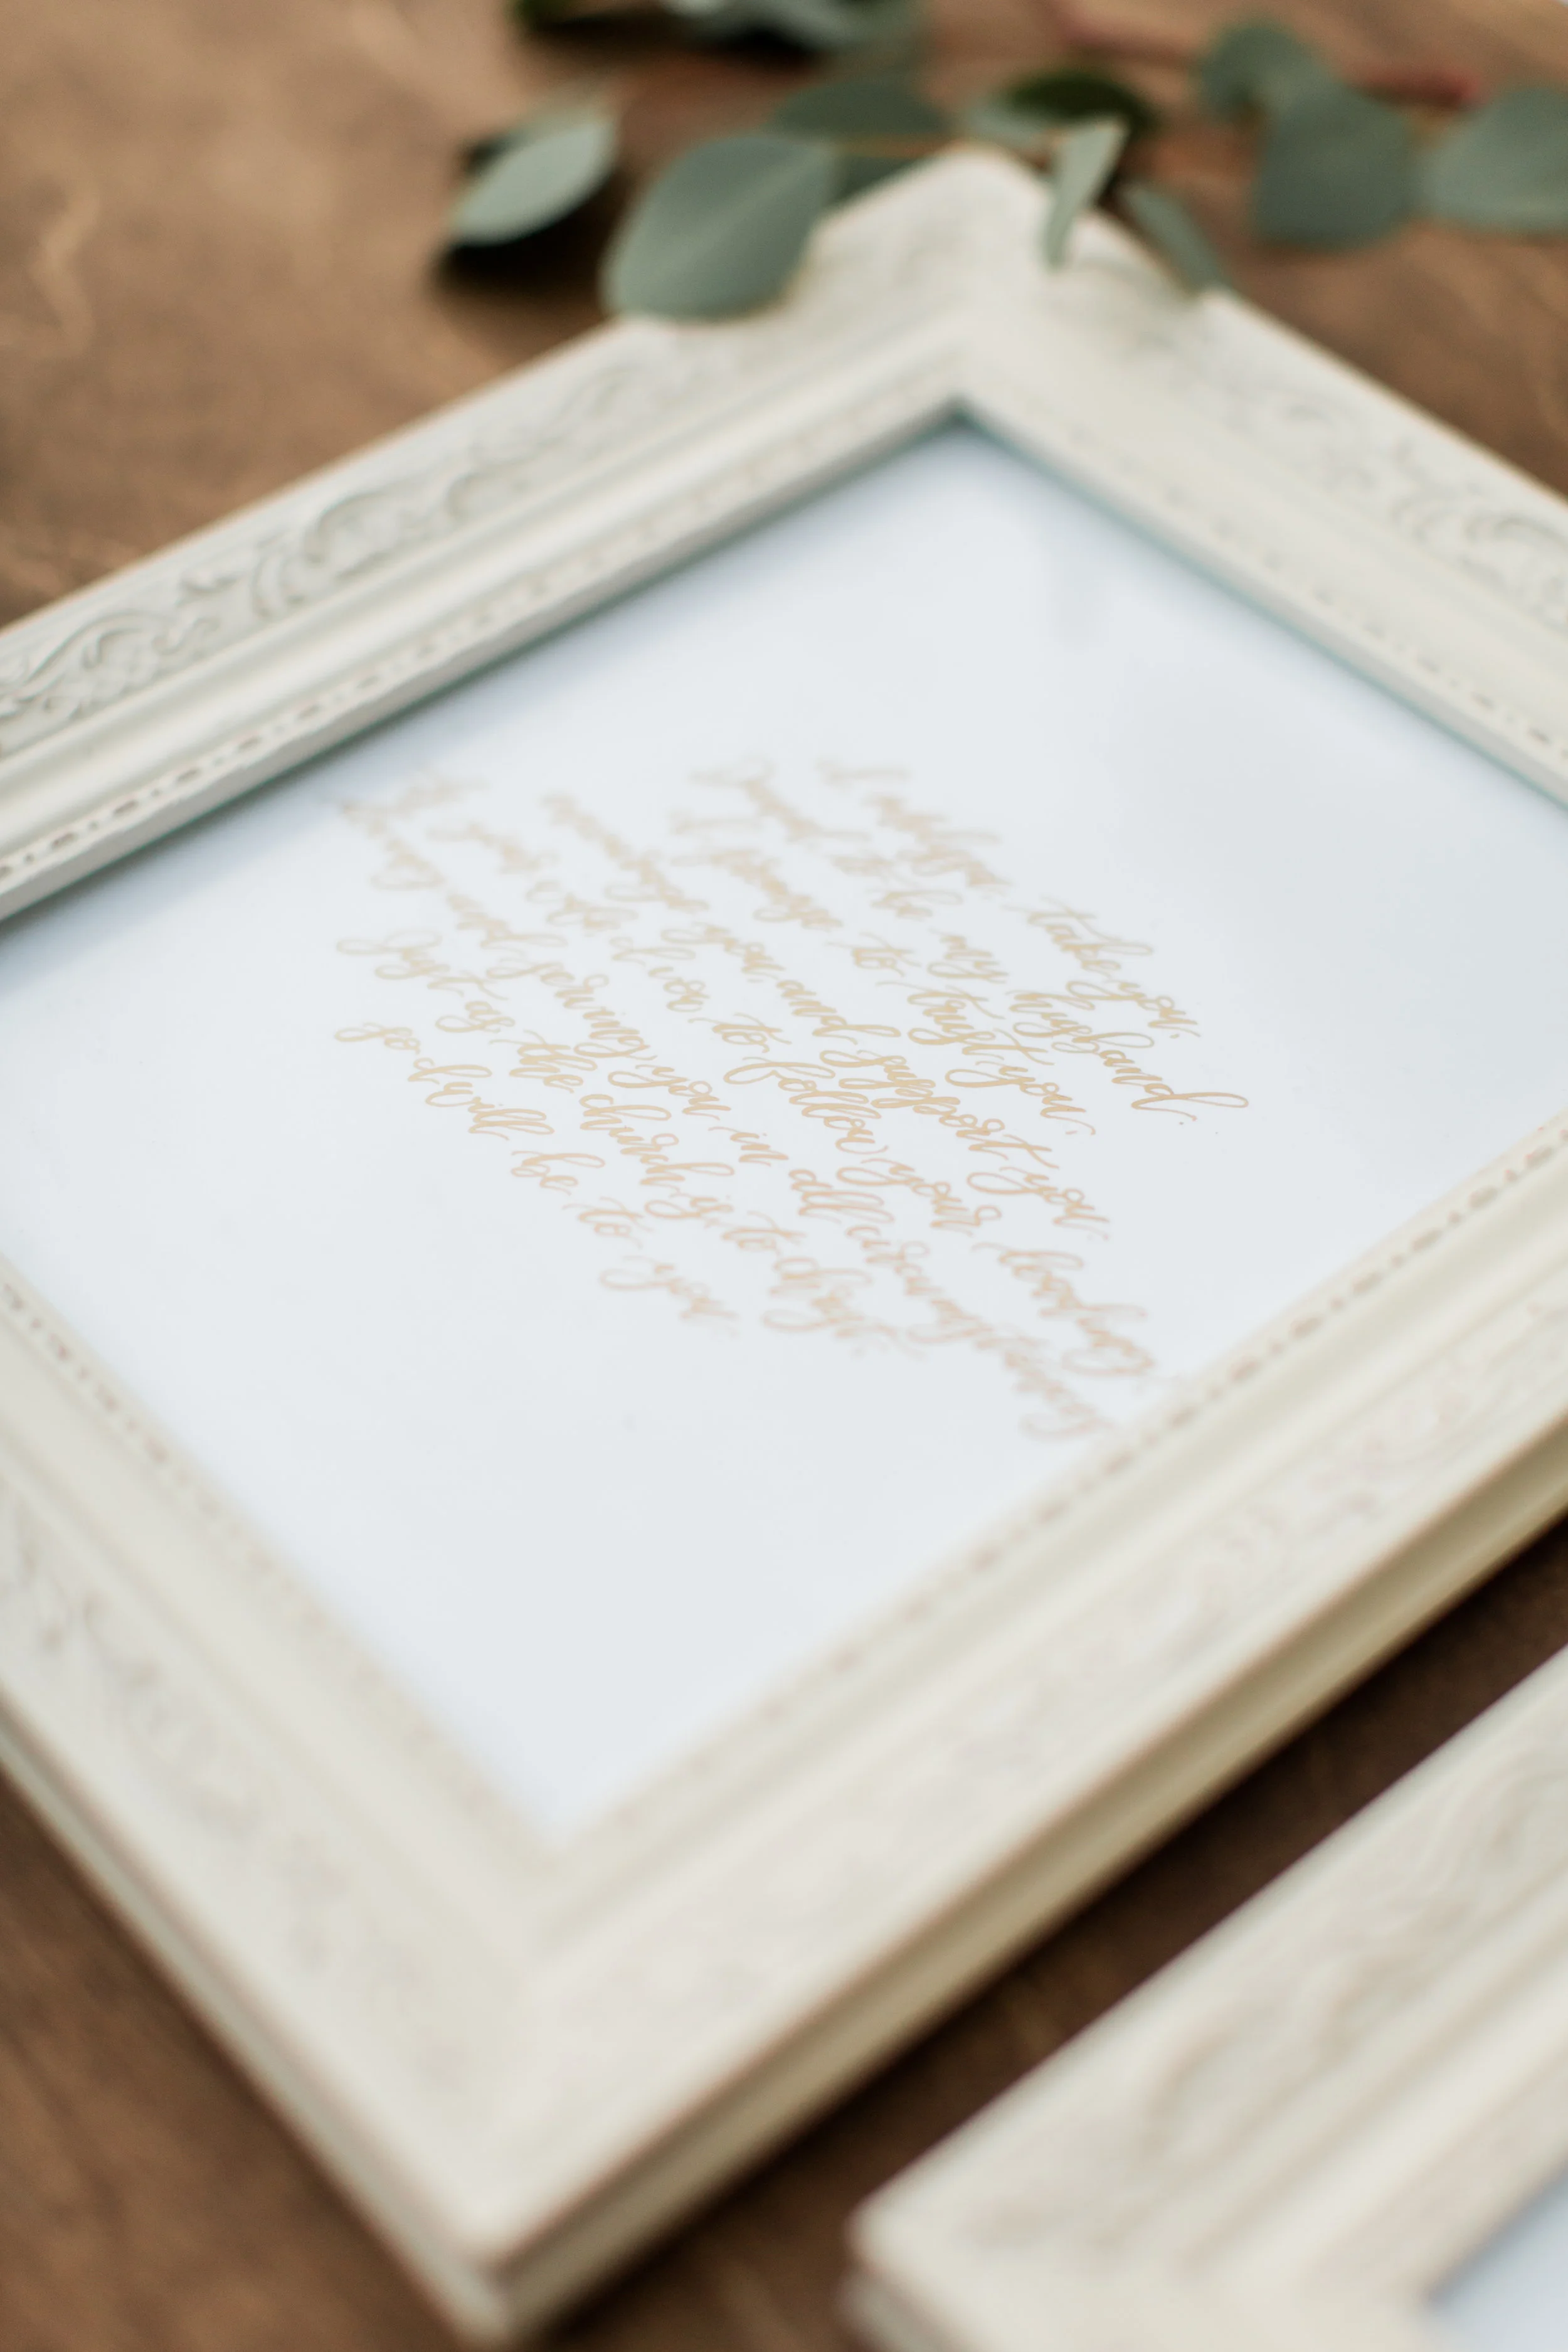 I, take you,
to be my husband.
I promise to trust you,
encourage you, and support you.
As your wife I vow to follow your leading,
loving and serving you in all circumstances
Just as the church is to Christ,
so I will be to you.